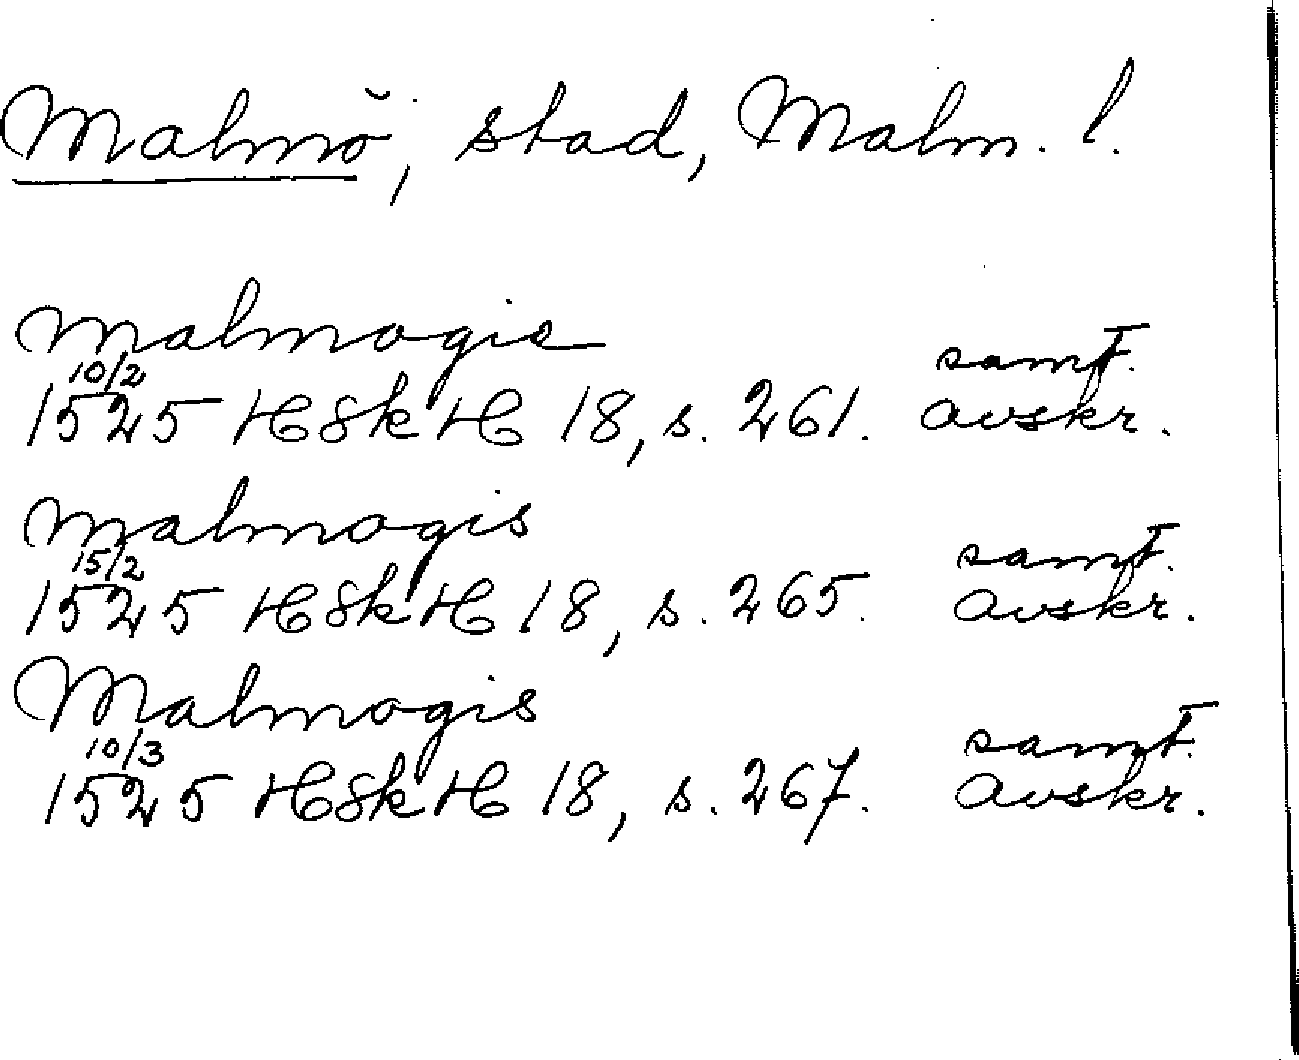 Malmö, stad, Malm. l.
Malmogie
10/2 samt.
1525 HSkH 18, s. 261. avskr.
Malmogis
15/2 samt.
1525 HSkH 18, s. 265. avskr.
Malmogis
10/3 samt.
1525 HSkH 18, s. 267. avskr.